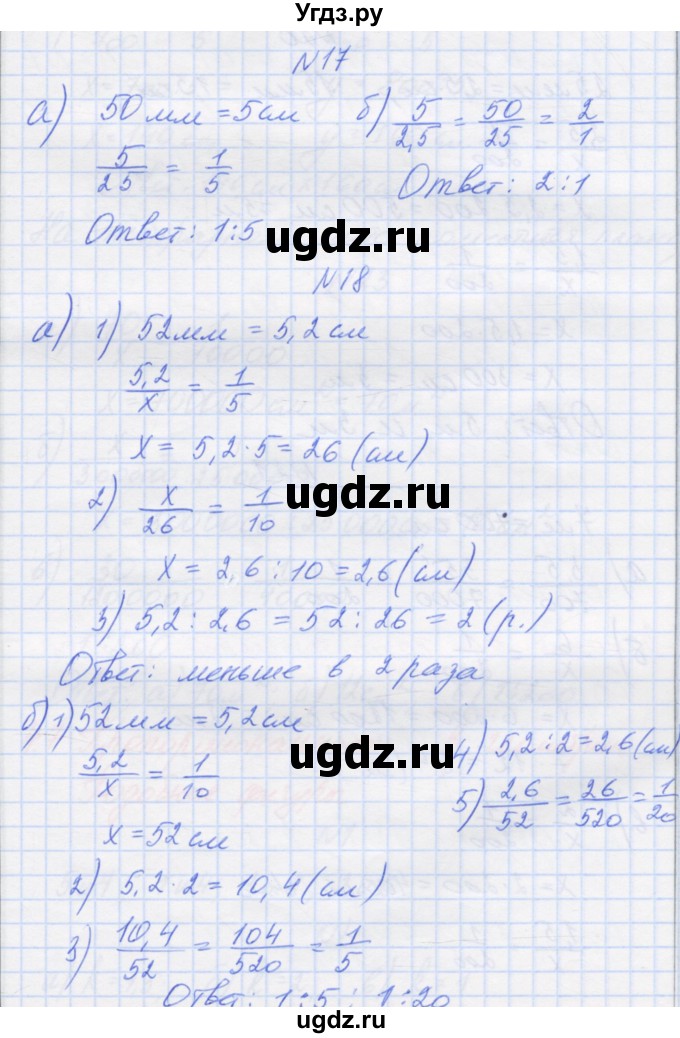 Угдз.ру
N17
а) 50 мм = 5 см б) 5/2,5 = 50/25 = 2/1
5/25 = 1/5 Ответ: 2:1
Ответ: 1:5
ugdz.ru
N18
а) 1) 52 мм = 5,2 см
5,2/x = 1/5
x = 5,2 · 5 = 26 (см)
2) x/26 = 1/10
ugdz.ru
x = 2,6 : 10 = 2,6 (см)
3) 5,2 : 2,6 = 52 : 26 = 2 (р.)
Ответ: меньше в 2 раза
б) 1) 52 мм = 5,2 см
5,2/x = 1/10
x = 52 см
2) 5,2 · 2 = 10,4 (см)
3) 10,4/52 = 104/520 = 1/5
4) 5,2 : 2 = 2,6 (см)
5) 2,6/52 = 26/520 = 1/20
ugdz.ru
Ответ: 1:5 ; 1:20
ugdz.ru